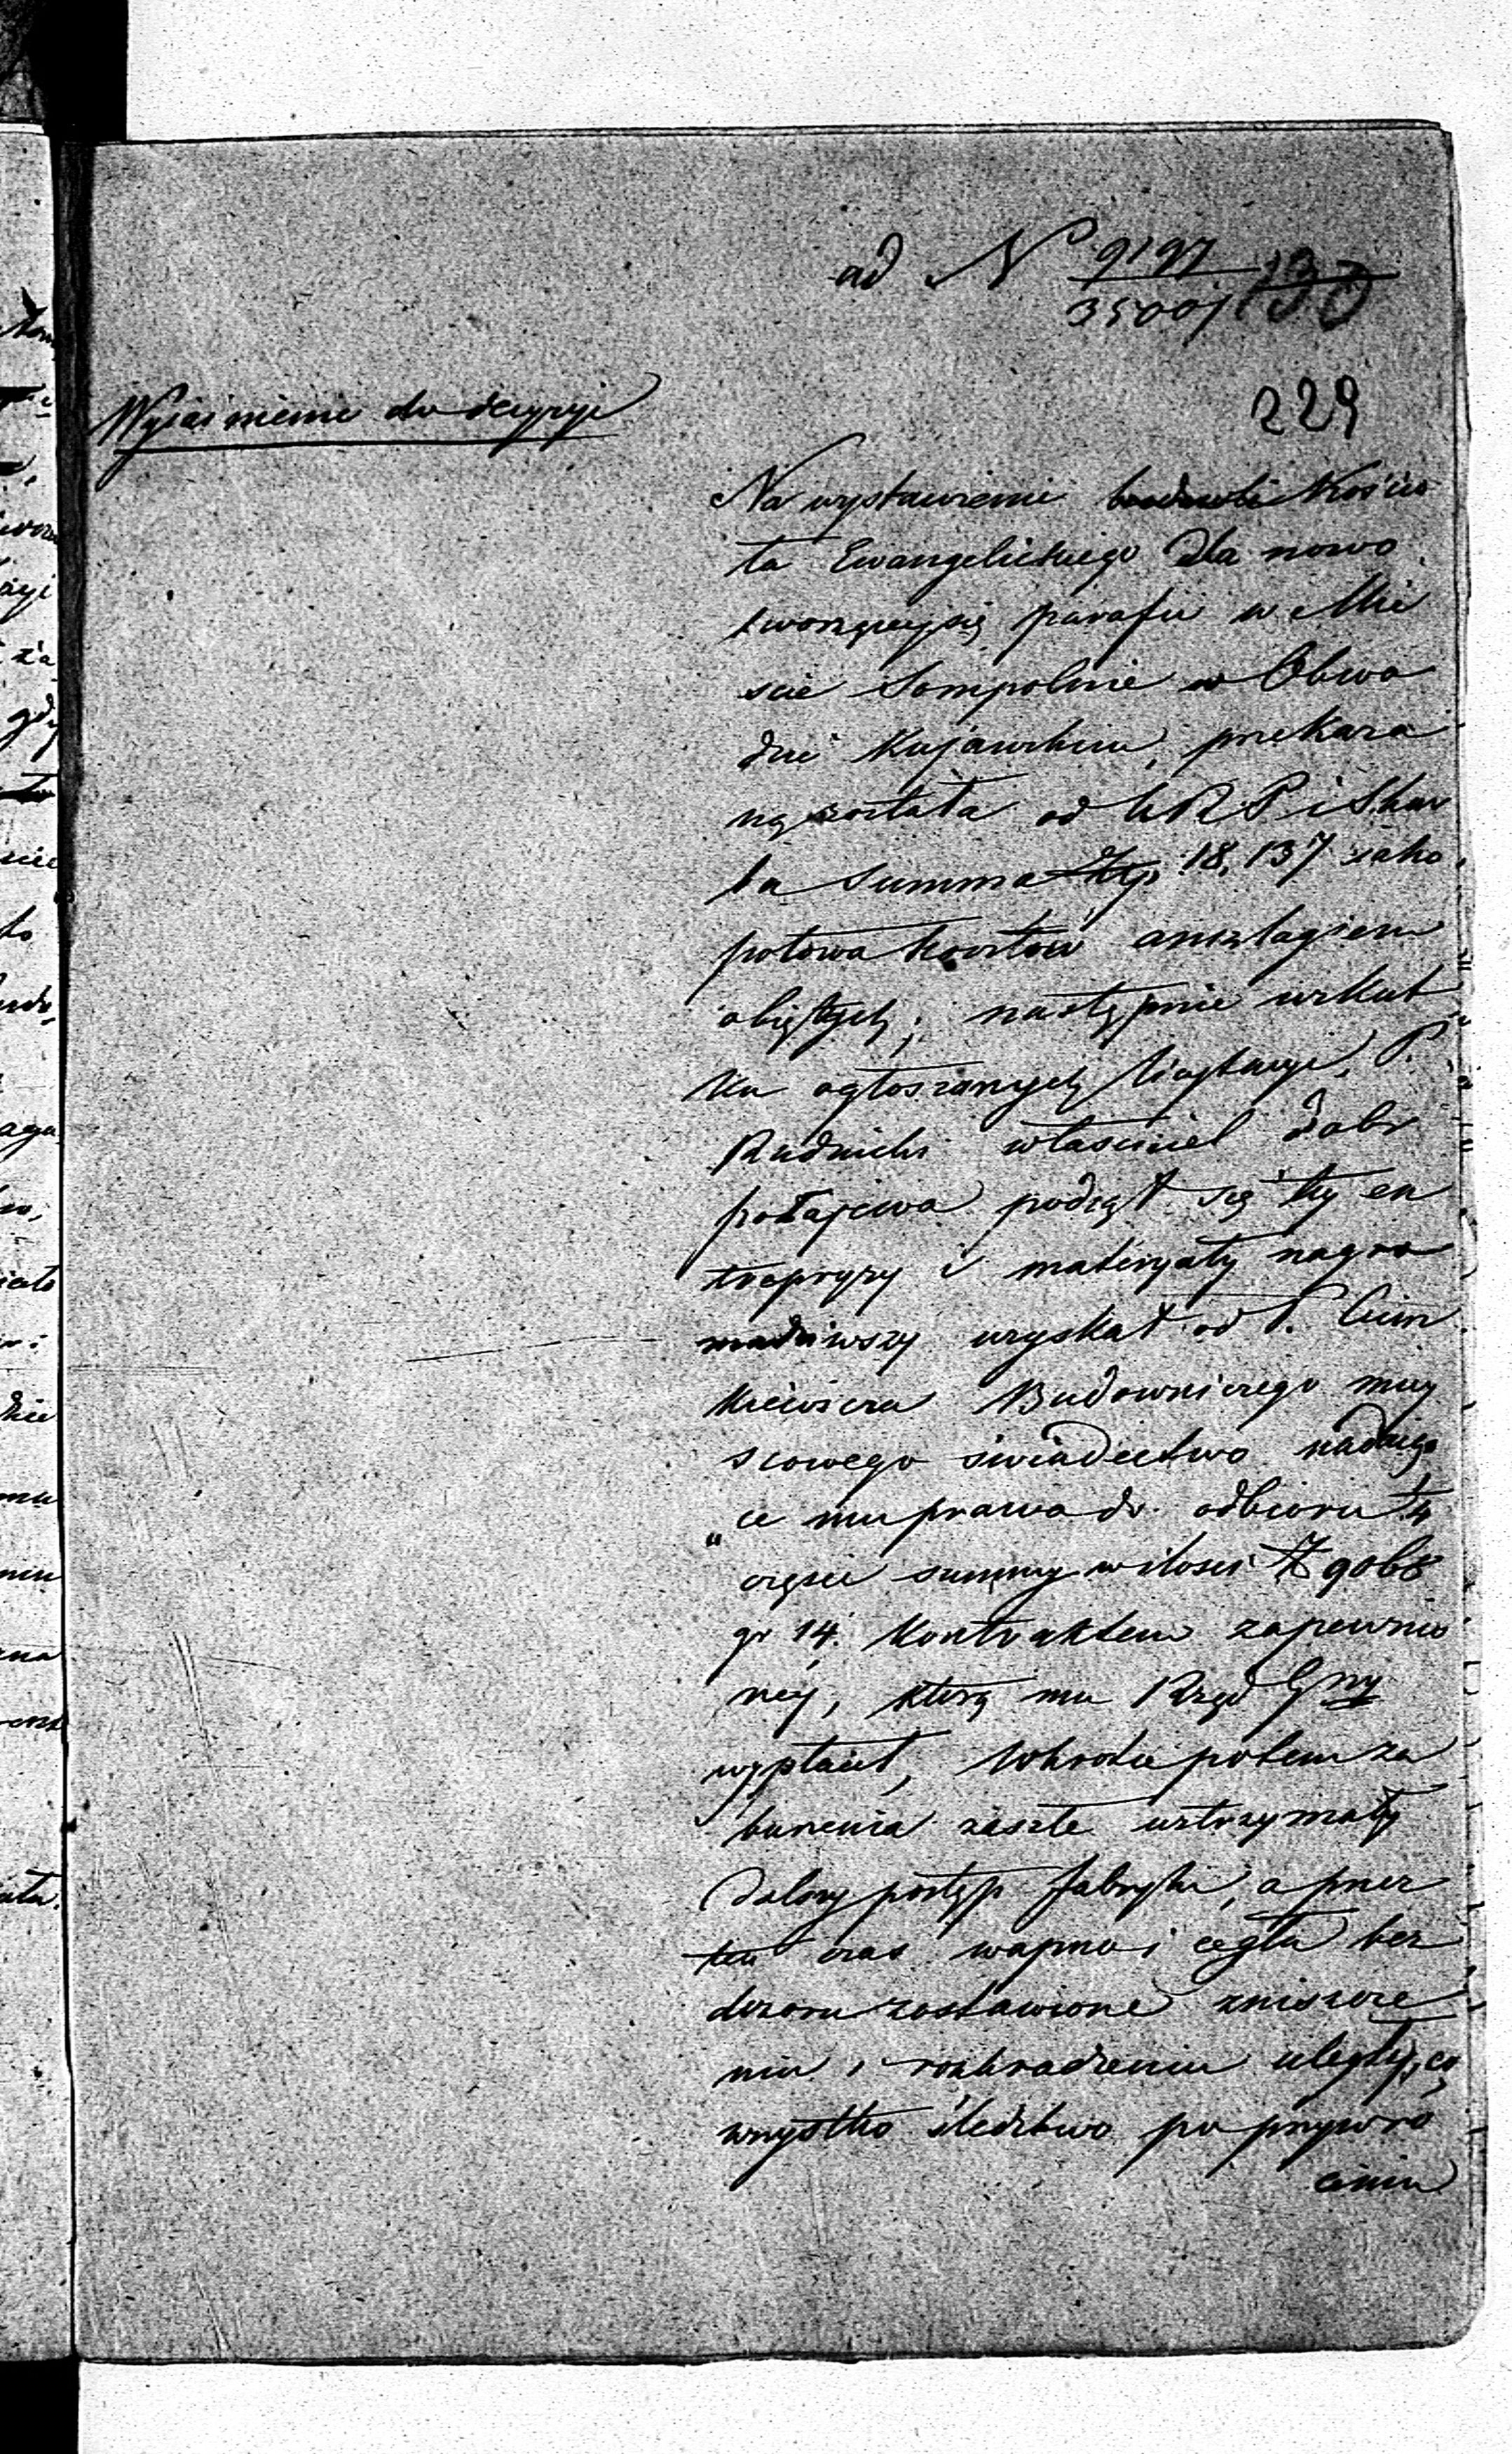 ad N 9197
35001 130
229
Wyiasnienie do decyzyi
Na wystawienie Kościo
ła Ewangelickiego dla nowo
tworzącej się parafii w Mie
scie Sompolnie w Obwo
dzie Kujawskim, przekaza
ną została od KRP i Skar
bu Summa Złp. 18,137 iako
połowa kosztów anszlagiem
obiętych; następnie wskut
ku ogłoszonych licytacyi, P.
Rudnicki właściciel dobr
Połajewa podiął się tey en
trepryzy i materyały nagro
madziwszy uzyskał od P.
Budowniczego miey
scowego świadectwo nadaią
ce mu prawo do odbioru 1/4
części summy w ilości Zł 9068
gr 14. Kontraktem zapewnio
ney, którą mu Rząd Gny
wypłacił, Wkrótce potem za
burzenia zaszłe wstrzymały
dalszy postęp fabryki, a przez
ten czas wapno i cegła bez
dozoru zostawione zniszcze
niu i rozkradzeniu uległy, co
wszystko śledztwo po przywró
ceniu